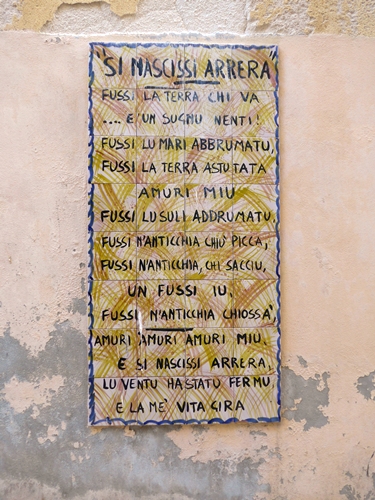 "SI NASCISSI ARRERA"
FUSSI LA TERRA CHI VA
.... E UN SUGNU NENTI!
FUSSI LU MARI ABBRUMATU,
FUSSI LA TERRA ASTUTATA
AMURI MIU
FUSSI LU SULI ADDRUMATU,
FUSSI N'ANTICCHIA CHIÙ PICCA,
FUSSI N'ANTICCHIA, CHI SACCIU,
UN FUSSI IU,
FUSSI N'ANTICCHIA CHIOSSÀ,
AMURI AMURI AMURI MIU,
E SI NASCISSI ARRERA,
LU VENTU HA STATU FERMU
E LA ME' VITA GIRA